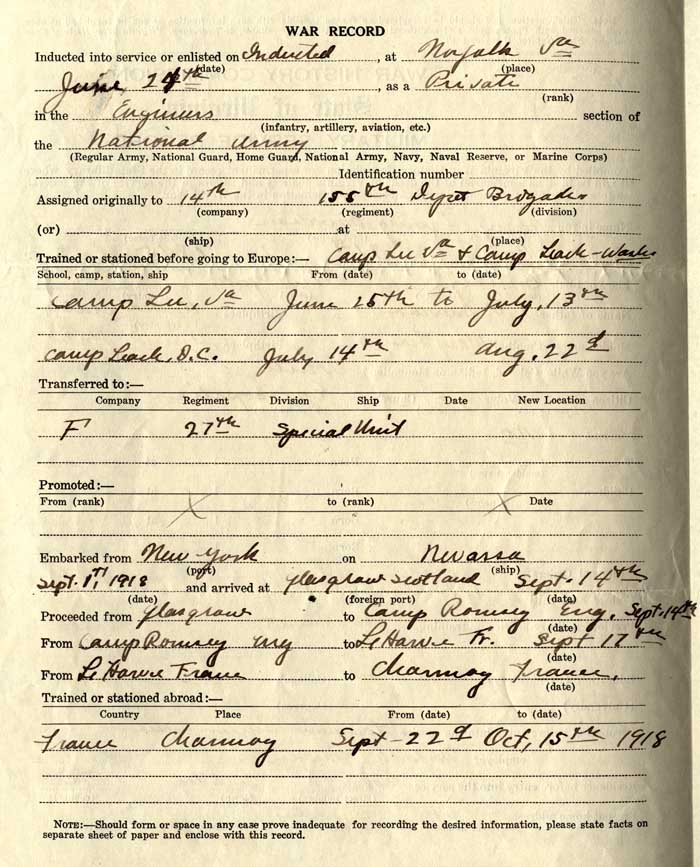 WAR RECORD
Inducted into service or enlisted on Inducted, at Norfolk Va
(date) (place)
June, 24th, as a Private
(rank)
in the Engineers section of
(infantry, artillery, aviation, etc.)
the National Army
(Regular Army, National Guard, Home Guard, National Army, Navy, Naval Reserve, or Marine Corps)
Identification number
Assigned originally to 14th 155th Depot Brogade
(company) (regiment) (division)
(or) at
(ship) (place)
Trained or stationed before going to Europe:— Camp Lee Va + Camp Leach-Wash
School, camp, station, ship From (date) to (date)
Camp Lee, Va June 25th to July, 13th
Camp Leach, D.C. July 14th Aug. 22d
Transferred to:—
Company Regiment Division Ship Date New Location
F 27th Special Unit
Promoted:—
From (rank) X to (rank) X Date
Embarked from New York on Nevassa
(port) (ship)
Sept. 1st, 1918 and arrived at Glasgraw Scotland Sept. 14th
(date) (foreign port) (date)
Proceeded from Glasgraw to Camp Romsey Eng, Sept. 14th
(date)
From Camp Romsey Eng to Le Harve Fr. Sept 17th
(date)
From Le Harve France to Charmoy France,
(date)
Trained or stationed abroad:—
Country Place From (date) to (date)
France Charmoy Sept-22d Oct, 15th 1918
NOTE:—Should form or space in any case prove inadequate for recording the desired information, please state facts on
separate sheet of paper and enclose with this record.